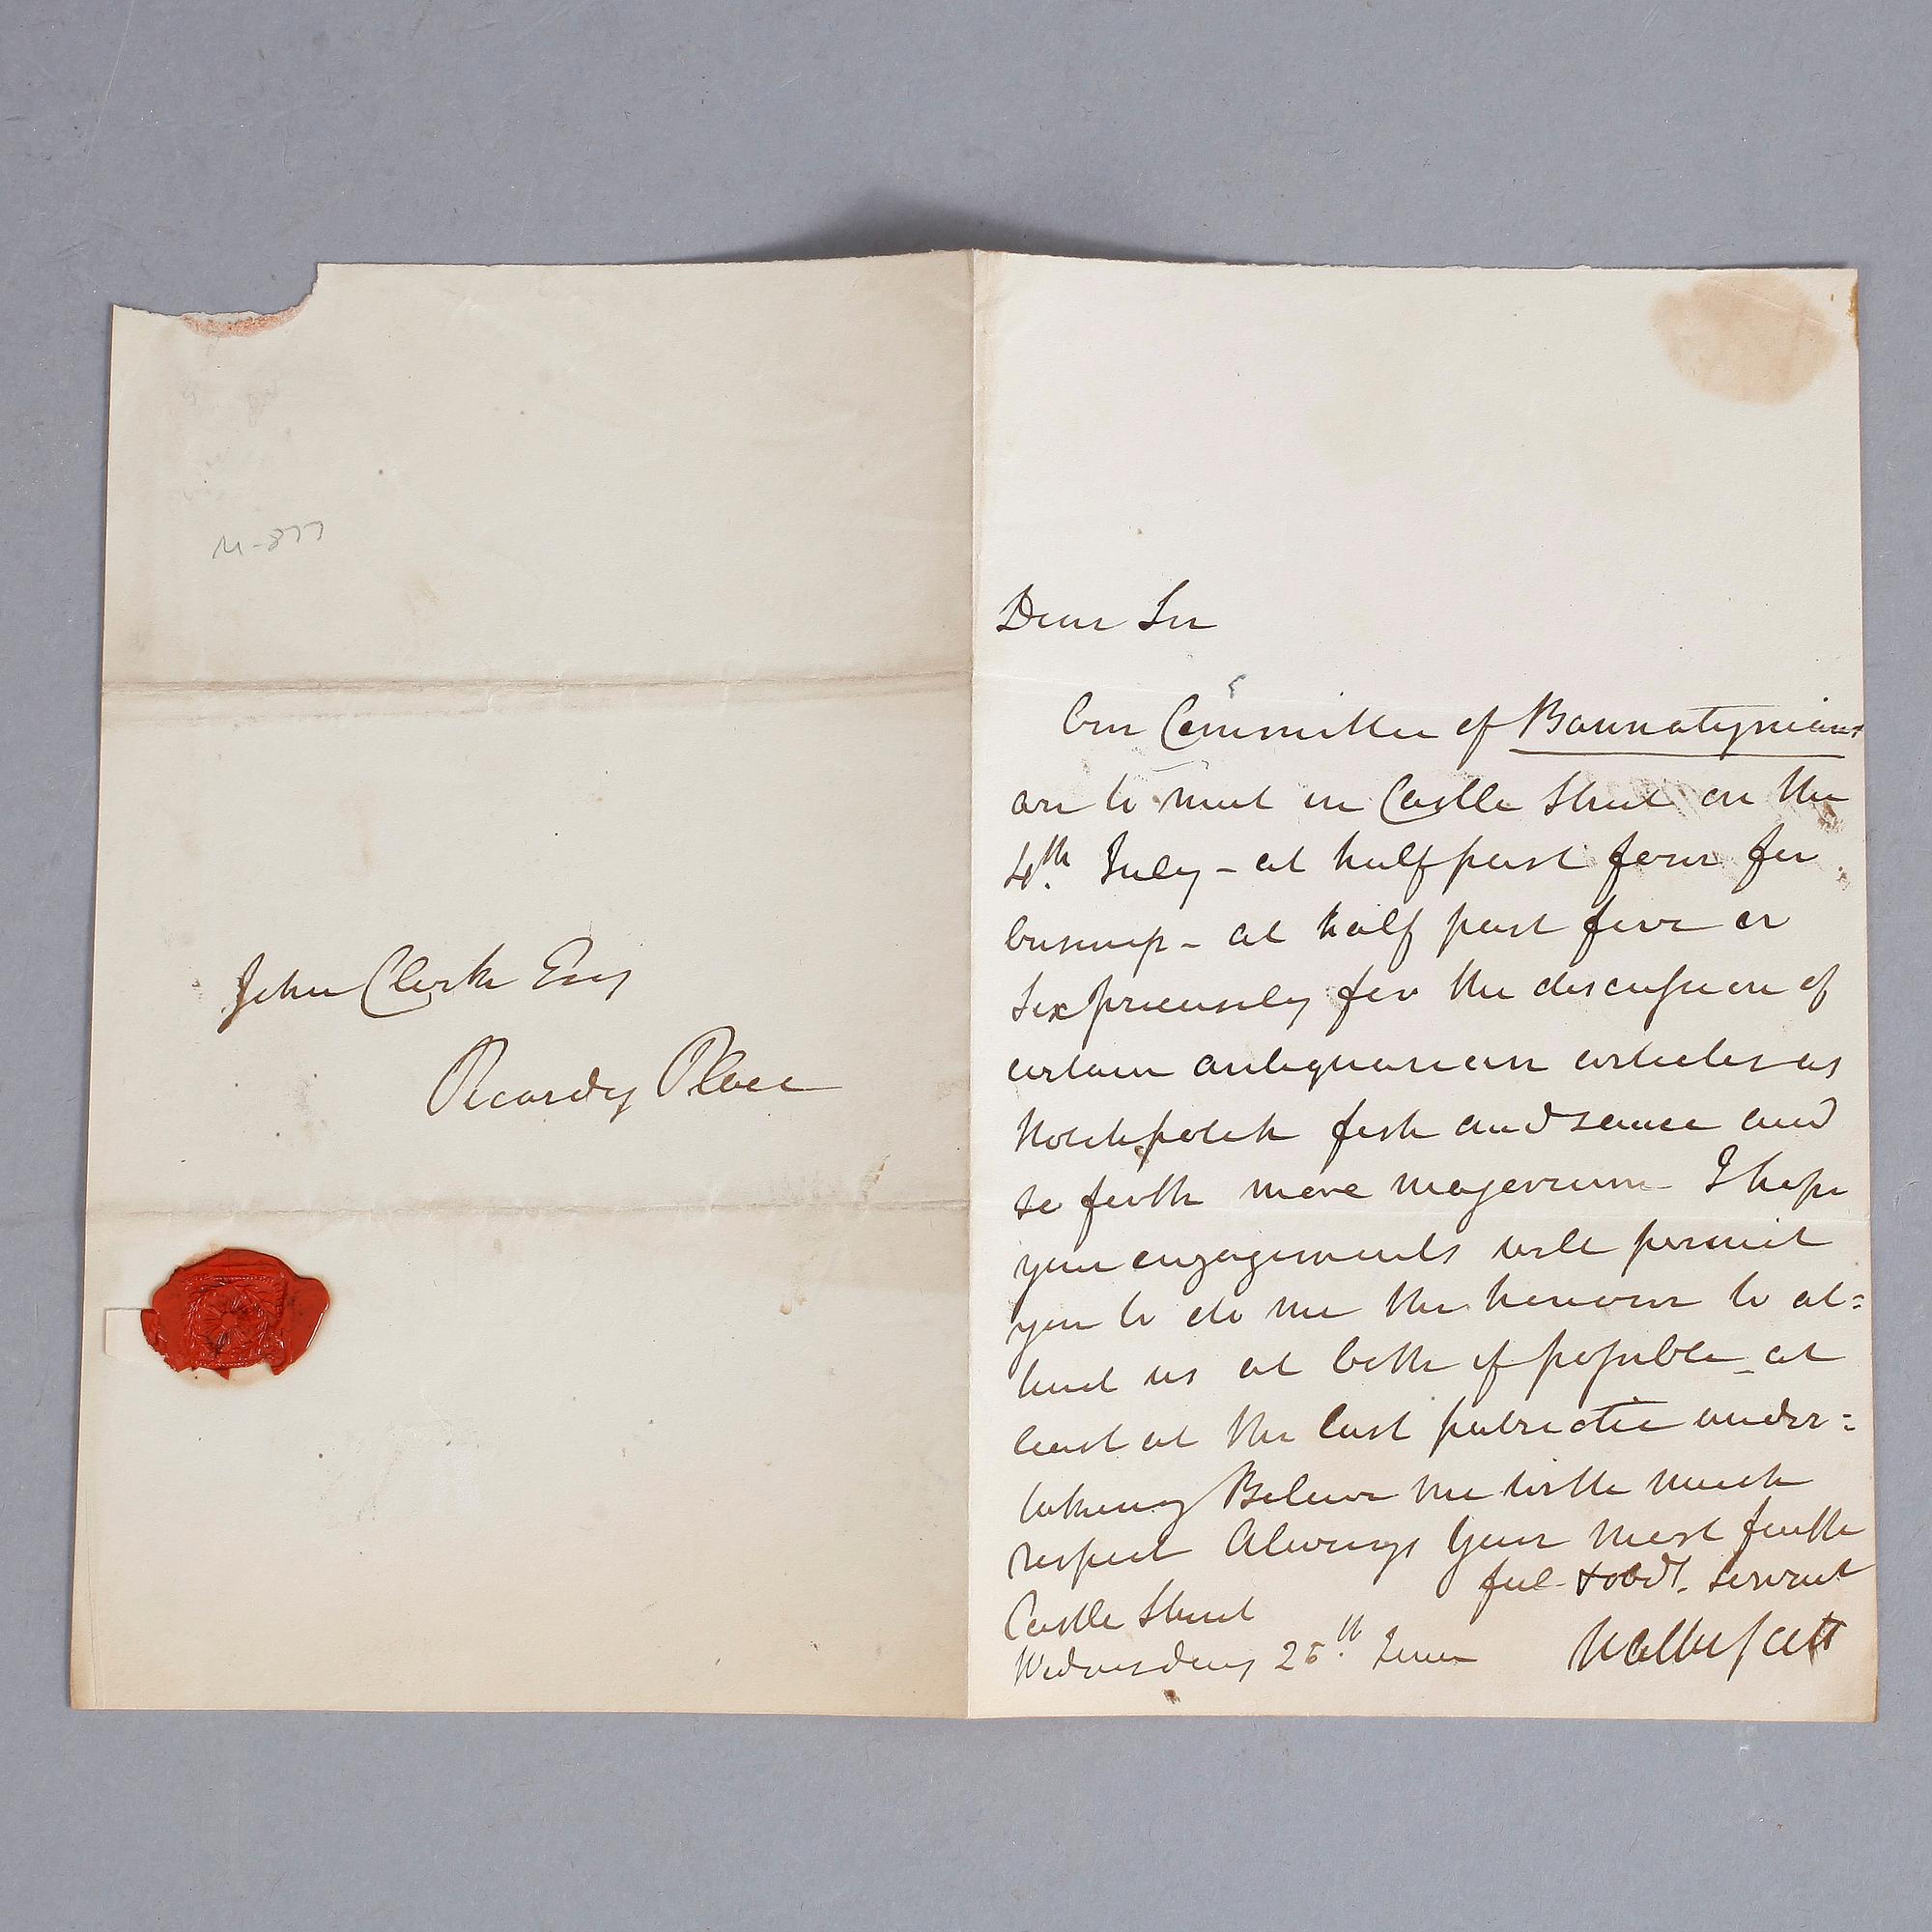 M-877
John Clerk Esq
Picardy Place
Dear Sir
Our Committee of Bannatynians
are to meet in Castle Street on the
4th. July - at half past four for
business - at half past five or
six precisely for the discussion of
certain antiquarian articles as
hotchpotch fish and sauce and
so forth more majorum - I hope
your engagements will permit
you to do me the honour to at=
tend us at both if possible - at
least at the last patriotic under=
taking Believe me with much
respect Always Your most faith
ful & obdt. servant
Castle Street
Wednesday 25th. June
Walter Scott